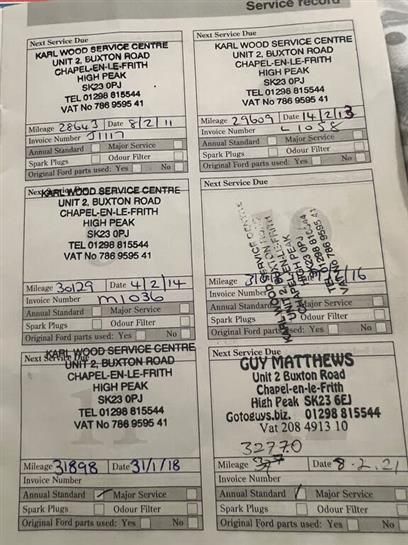 Service record
Next Service Due
KARL WOOD SERVICE CENTRE
UNIT 2, BUXTON ROAD
CHAPEL-EN-LE-FRITH
HIGH PEAK
SK23 0PJ
TEL 01298 815544
VAT No 786 9595 41
Mileage 28643 Date 8/2/11
Invoice Number J1117
Annual Standard Major Service
Spark Plugs Odour Filter
Original Ford parts used: Yes No
Next Service Due
KARL WOOD SERVICE CENTRE
UNIT 2, BUXTON ROAD
CHAPEL-EN-LE-FRITH
HIGH PEAK
SK23 0PJ
TEL 01298 815544
VAT No 786 9595 41
Mileage 29609 Date 14/2/13
Invoice Number L1058
Annual Standard Major Service
Spark Plugs Odour Filter
Original Ford parts used: Yes No
Next Service Due
KARL WOOD SERVICE CENTRE
UNIT 2, BUXTON ROAD
CHAPEL-EN-LE-FRITH
HIGH PEAK
SK23 0PJ
TEL 01298 815544
VAT No 786 9595 41
Mileage 30129 Date 4/2/14
Invoice Number M1036
Annual Standard Major Service
Spark Plugs Odour Filter
Original Ford parts used: Yes No
Next Service Due
KARL WOOD SERVICE CENTRE
UNIT 2, BUXTON ROAD
CHAPEL-EN-LE-FRITH
HIGH PEAK
SK23 0PJ
TEL 01298 815544
VAT No 786 9595 41
Mileage
Invoice Number
Annual Standard Major Service
Spark Plugs Odour Filter
Original Ford parts used: Yes No
Next Service Due
KARL WOOD SERVICE CENTRE
UNIT 2, BUXTON ROAD
CHAPEL-EN-LE-FRITH
HIGH PEAK
SK23 0PJ
TEL 01298 815544
VAT No 786 9595 41
Mileage 31898 Date 31/1/18
Invoice Number
Annual Standard Major Service
Spark Plugs Odour Filter
Original Ford parts used: Yes No
Next Service Due
GUY MATTHEWS
Unit 2 Buxton Road
Chapel-en-le-Frith
High Peak SK23 6EJ
Gotoguys.biz. 01298 815544
Vat 208 4913 10
32770
Mileage Date 8.2.21
Invoice Number
Annual Standard Major Service
Spark Plugs Odour Filter
Original Ford parts used: Yes No